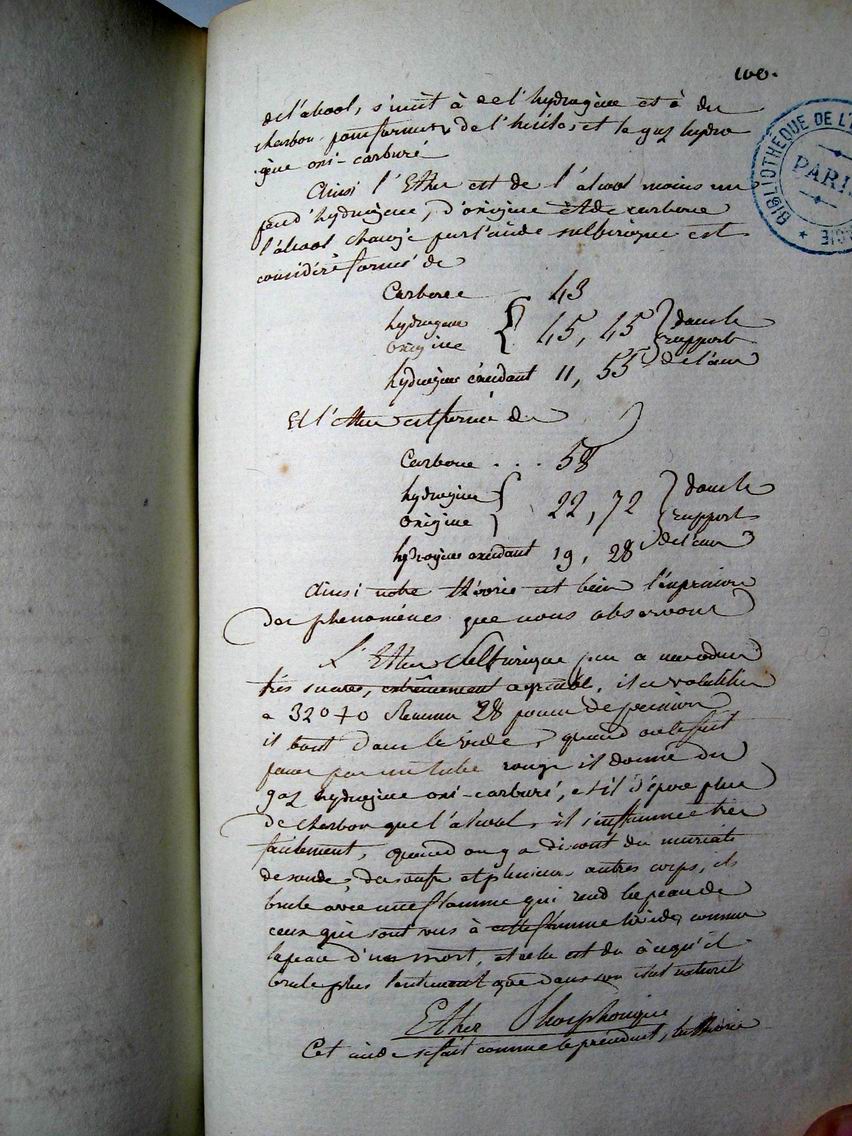 100.
de l'alcool, s'unit à de l'hydrogène et à du
charbon pour former de l'huile, et le gaz hydro
gène oxi-carburé
Ainsi l'Ether est de l'alcool moins un
peu d'hydrogène, d'oxigène et de carbone
l'alcool changé par l'acide sulfurique est
considéré formé de
Carbone 43
hydrogène
oxigène
45, 45
dans le
rapport
de l'eau
hydrogène excédant 11, 55
Et l'ether est formé de
Carbone . . . 58
hydrogène
oxigène
22, 72
dans le
rapport
de l'eau
hydrogène excédant 19, 28
Ainsi notre théorie est bein l'expression
des phenomènes que nous observons
L'Ether Sulfurique pur a une odeur
très suave, extrêmement agréable, il se volatilise
a 32 + 0 Reaumur 28 pouces de pression
il bout dans le vide, quand on le fait
passer par un tube rouge il donne du
gaz hydrogène oxi-carburé, et il dépose plus
de charbon que l'alcool, il s'enflamme très
facilement, quand on y a dissout du muriate
de soude, du soufre et plusieurs autres corps, il
brule avec une flamme qui rend la peau de
ceux qui sont vus à cette flamme livide comme
la peau d'un mort, et cela est du à ce qu'il
brule plus lentement que dans son état naturel
Ether Phosphorique
Cet acide se fait comme le précédent, la théorie
BIBLIOTHÈQUE DE L'
PARIS